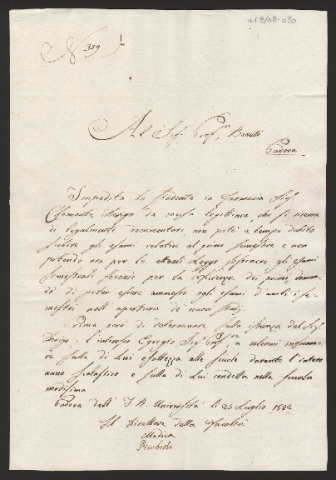 N° 309
Al Sigr Profr Bonato
Padova
Impedito lo studente in Farmacia Sigr
Clemente da causa legittima che si riserva
di legalmente documentare non potè a tempo debito
subire gli esami relativi al primo semestre e non
potendo ora per le Leggi subirsene gli esami
semestrali per la
di poter essere ammesso agli esami d'ambi i se-
mestri nell'apertura de' nuovi studj.
Prima però di determinare sulla istanza del Sigr
interesso Egregio Sigr Profr a volermi informa-
re sulla di Lui esattezza alle scuole durante l'intero
anno scolastico e sulla di Lui condotta nella scuola
medesima
Padova dall' I. R. Università li 25 Luglio
Il Direttore della Facoltà
Medica